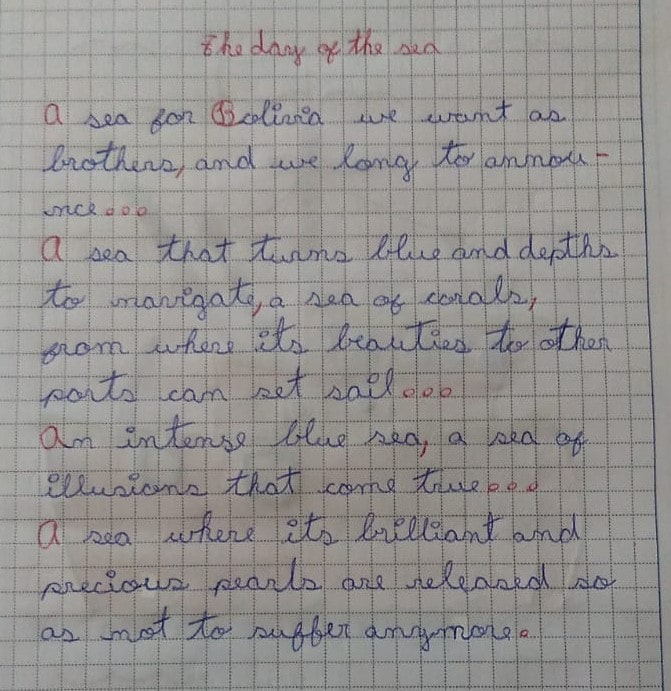 The day of the sea
A sea for Bolivia we want as
brothers, and we long to annou-
nce...
A sea that turns blue and depths
to navigate, a sea of corals,
from where its beauties to other
ports can set sail...
An intense blue sea, a sea of
illusions that come true...
A sea where its brilliant and
precious pearls are released so
as not to suffer anymore.